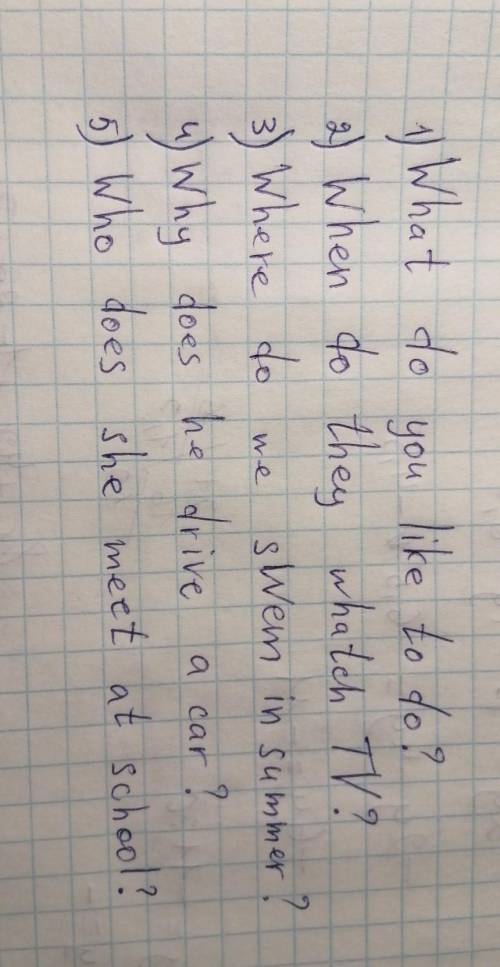 1) What do you like to do?
2) When do they whatch TV?
3) Where do we swem in summer?
4) Why does he drive a car?
5) Who does she meet at school?